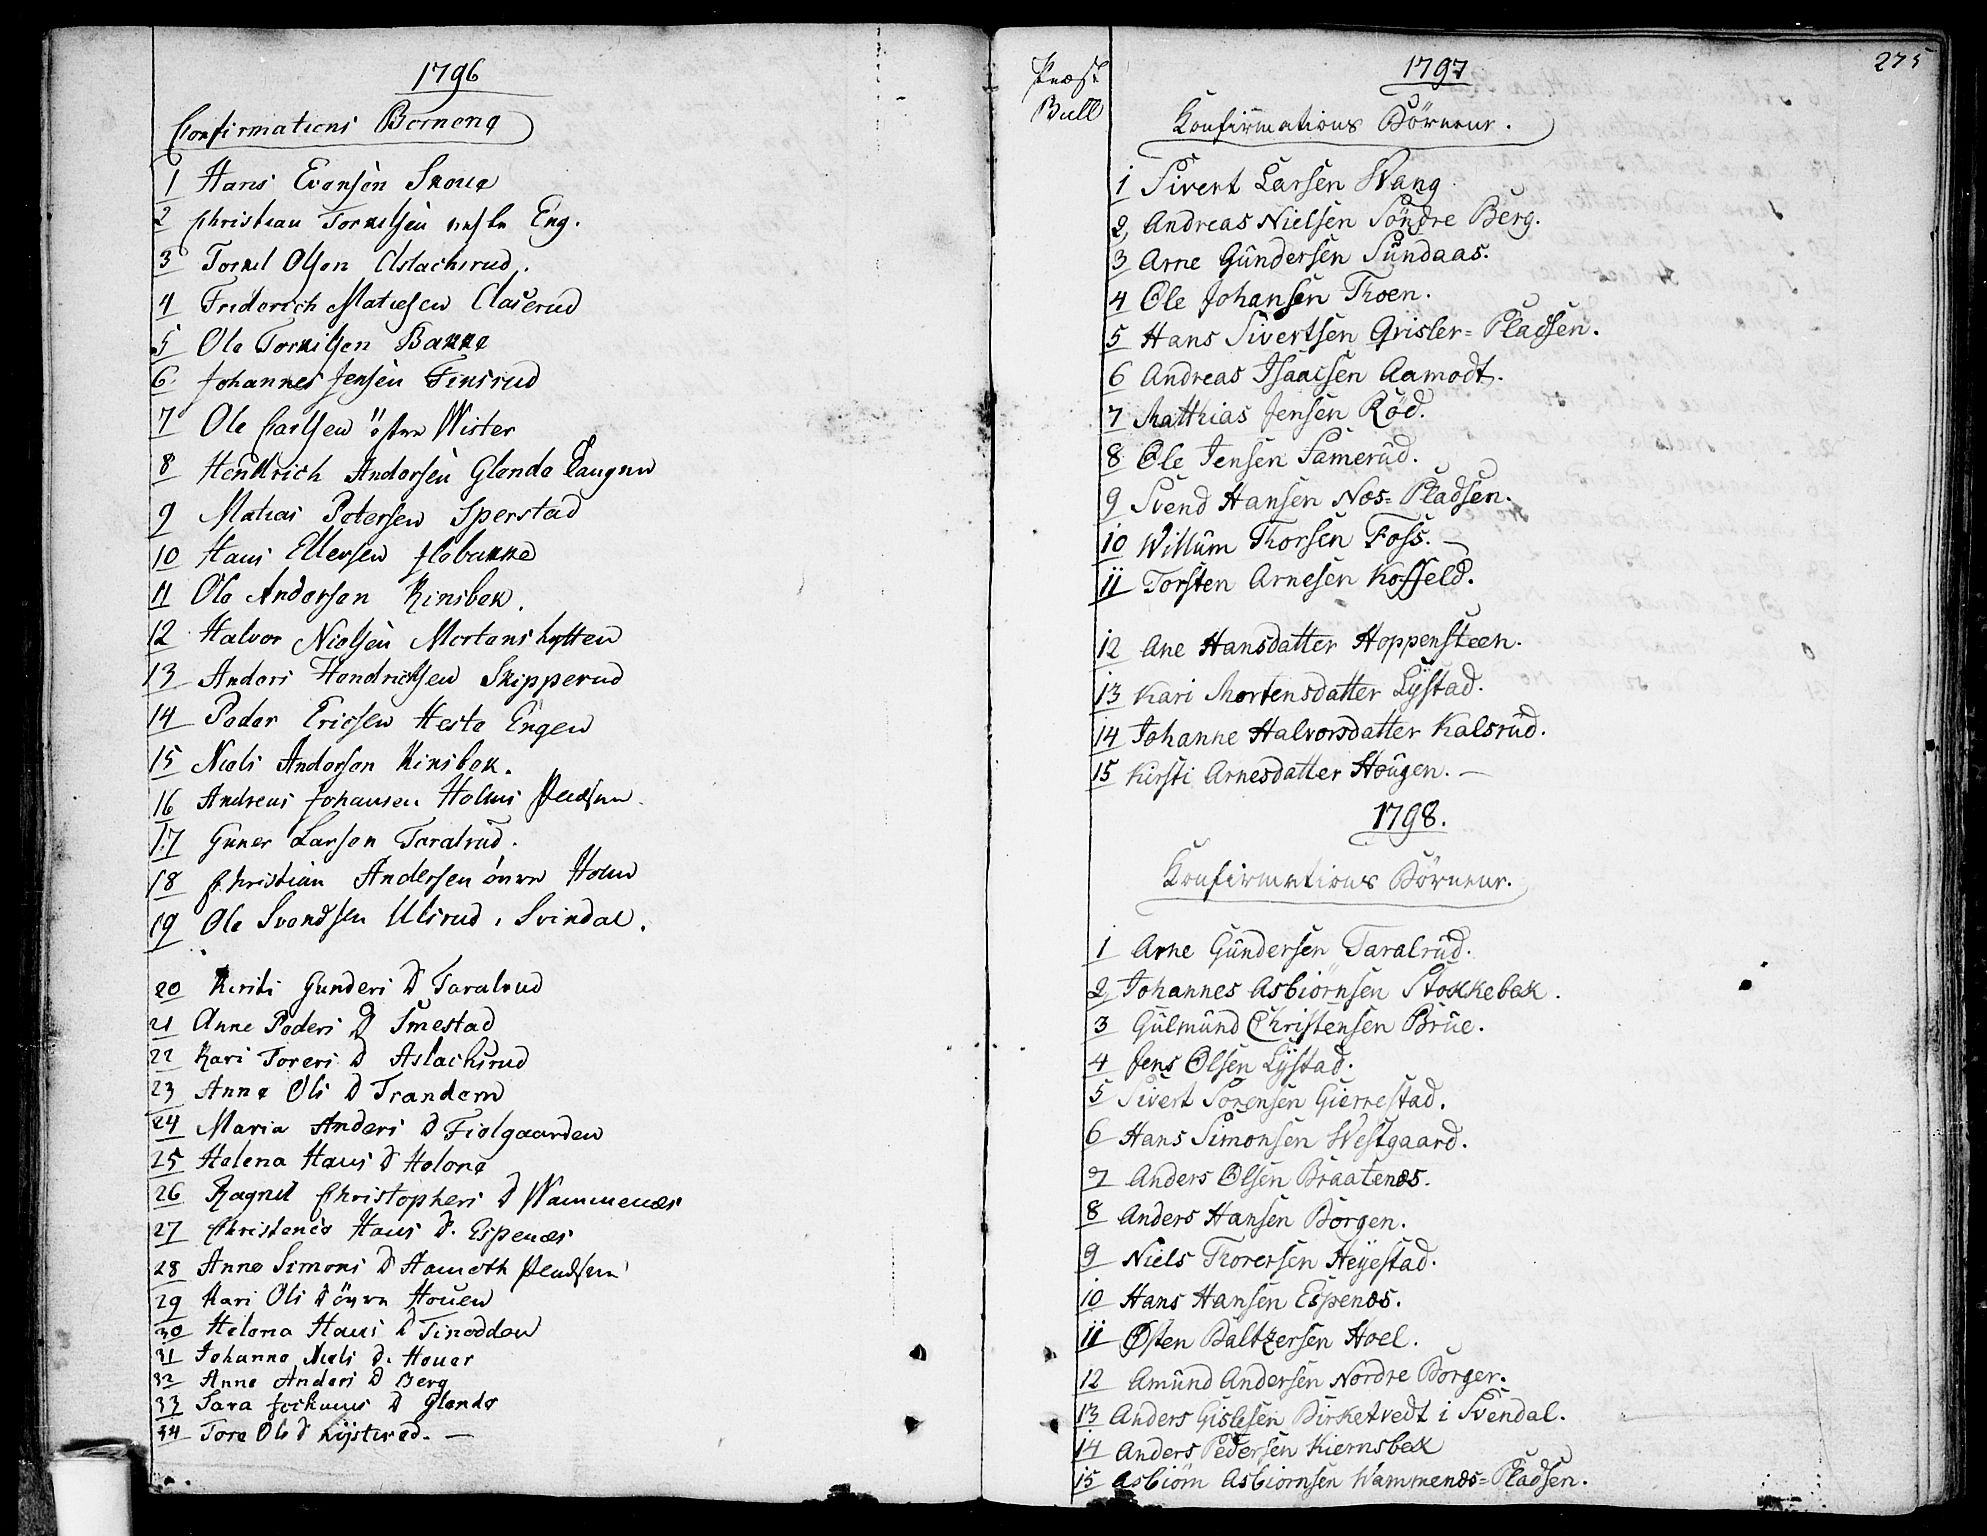 1796
Confirmations Bornene
1 Hans Evensen Skoug
2 Christian Torkelsen Eng.
3 Torkel Olsen Aslachsrud.
4 Friderich Matiesen Claserud
5 Ole Torkilsen Bakke
6. Johannes Jensen Finsrud
7 Ole Carlsen Wister
8 Hendrich Andersen Glende Taugen
9 Matias Petersen Sperstad
10 Hans Ellersen Flobakke
11 Ole Andersen Kinsbek.
12 Halvor Nielsen Mortenshytten
13 Anders Hendrichsen Skipperud
14 Peder Ericsen Heste Engen
15 Niels Andersen Kinsbek.
16 Andreas Johansen Holms Pladsen
17 Guner Larsen Taralrud.
18 Christian Andersen öwre Holm
19 Ole Svendsen Ulsrud i Svindal.
20 Kirsti Gunders D Taralrud
21 Anne Peders D Smestad
22 Kari Torers D Aslachsrud
23 Anne Ols D Trandem
24 Maria Anders D Fiolgaarden
25 Helena Hans D Holene
26 Ragnil Christophers D Wammenæs
27 Christence Hans D. Espenæs
28 Anne Simons D Hameth Pladsen
29 Kari Ols D öwre Houen
30 Helena Hans D Tinodden
31 Johanne Niels D. Houer
32 Anne Anders D Berg
33 Sara Jochums D Glende
34 Tore Ols D Lysterud. —
Præst
Bull
1797
275
Konfirmations Börnene.
1 Sivert Larsen Wang
2, Andreas Nielsen Söndre Berg.
3 Arne Gundersen Sundaas.
4 Ole Johansen Thoen.
5 Hans Sivertsen Grisler=Pladsen.
6 Andreas Isaacsen Aamodt.
7 Matthias Jensen Röd.
8 Ole Jensen Samerud.
9 Svend Hansen Nos=Pladsen.
10 Willum Thorsen Foss. —
11 Torsten Arnesen Koffeld.
12 Ane Hansdatter Hoppensteen.
13 Kari Mortensdatter Lystad.
14 Johanne Halvorsdatter Kalsrud.
15 Kirsti Arnesdatter Hougen. —
1798.
Konfirmations Börnene.
1 Arne Gundersen Taralrud.
2, Johannes Asbiörnsen Stokkebek.
3 Gulmund Christensen Brue.
4 Jens Olsen Lystad.
5 Sivert Sörensen Gierrestad.
6 Hans Simonsen Westgaard.
7 Anders Olsen Braatenæs.
8 Anders Hansen Borgen.
9 Niels Thorersen Heyestad.
10 Hans Hansen Espenæs.
11 Østen Baltzersen Hoel.
12 Amund Andersen Nordre Borger.
13 Anders Gislesen Birketvedt i Svendal.
14 Anders Pedersen Kiernsbek
15 Asbiörn Asbiornsen Wammenæs=Pladsen.